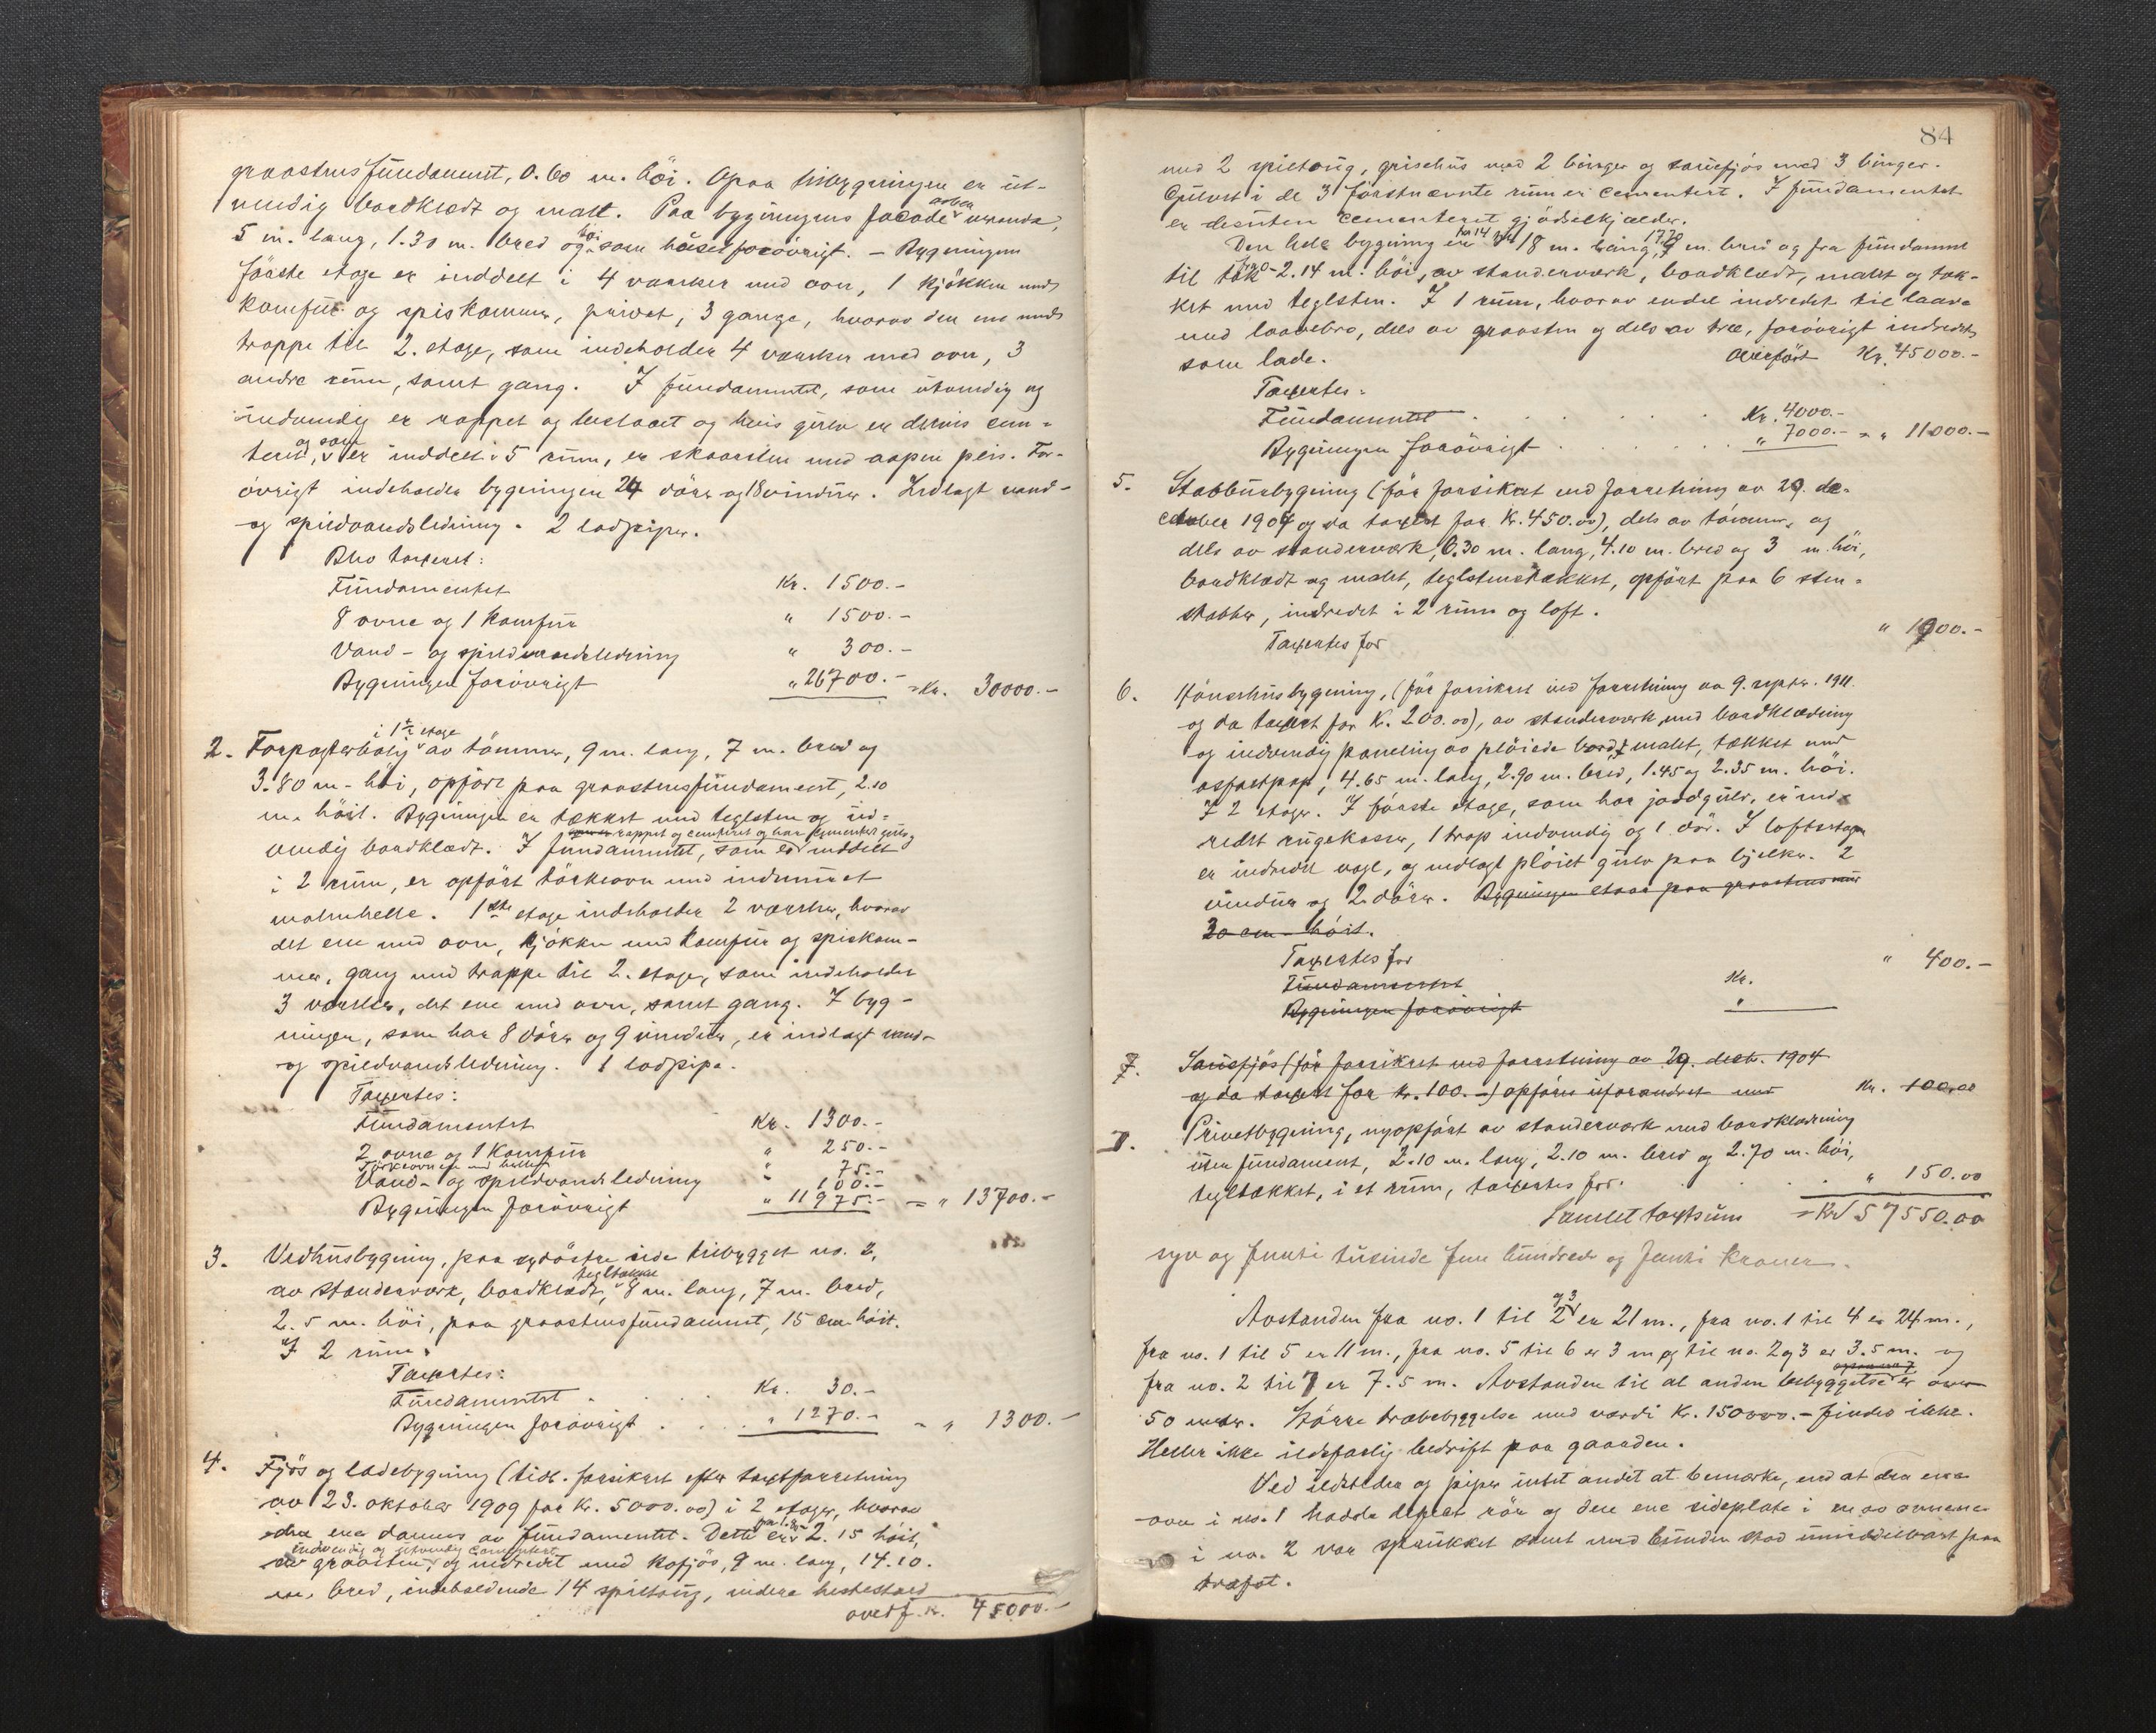 graastensfundament, 0.60 m. höi. Ogsaa tilbygningen er ut-
vendig bordklædt og malt. Paa bygningens facade aaben veranda,
5 m. lang, 1.30 m. bred og höi som huset forövrigt. - Bygningens
förste etage er inddelt i 4 værelser med ovn, 1 kjökken med
komfur og spiskammer, privet, 3 gange, hvorav den ene med
trappe til 2. etage, som indeholder 4 værelser med ovn, 3
andre rum, samt gang. I fundamentet, som utvendig og
indvendig er rappet og og hvis gulv er delvis cemen-
tert, og som er inddelt i 5 rum, er skorsten med aapen peis. For-
övrigt indeholder bygningen 24 döre og 18 vinduer. Indlagt vand-
og spildvandsledning. 2 lodpiper.
Blev taxeret:
Fundamentet Kr. 1500.-
8 ovne og 1 komfur " 1500.-
Vand- og spildvandsledning " 300.-
Bygningen forövrigt " 26700.- = Kr. 30000.-
2. Forpagterbolig i 1ste etage av tömmer, 9 m. lang, 7 m. bred og
3.80 m. höi, opfört paa graastensfundament, 2.10
m. höit. Bygningen er tækket med teglsten og ut-
vendig bordklædt. I fundamentet, som er rappet og cementeret og har cementert gulv og inddelt
i 2 rum, er opfört törkeovn med indmuret
malmhelle. 1ste etage indeholder 2 værelser, hvorav
det ene med ovn, kjökken med komfur og spiskam-
mer, gang med trappe til 2. etage, som indeholder
3 værelser, det ene med ovn, samt gang. I byg-
ningen, som har 8 döre og 9 vinduer, er indlagt vand-
og spildvandsledning. 1 lodpipe.
Taxertes:
Fundamentet Kr. 1300.-
2 ovne og 1 komfur " 250.-
Törkeovnen med hellen " 75.-
Vand- og spildvandsledning " 100.-
Bygningen forövrigt " 11975.- = " 13700.-
3. Vedhusbygning, paa sydöstre side tilbygget no. 2,
av standerværk, bordklædt, tegltækket 8 m. lang, 7 m. bred,
2.5 m. höi, paa graastensfundament, 15 cm. höit.
I 2 rum.
Taxertes:
Fundamentet . . . Kr. 30.-
Bygningen forövrigt . . . " 1270.- = " 1300.-
4. Fjös og ladebygning (tidl. forsikret efter taxtforretning
av 23. oktober 1909 for Kr. 5000.00) i 2 etager, hvorav
den ene dannes av fundamentet. Dette er 2.15 höit,
av graasten, indvendig og utvendig cementert og indredet med kofjös, 9 m. lang, 14.10
m. bred, indeholdende 14 spiltoug, videre hestestald
overf. Kr. 45000.-
84
med 2 spiltoug, grisehus med 2 binger og sauefjös med 3 binger.
Gulvet i de 3 förstnævnte rum er cementert. I fundamentet
er desuten cementeret gjödselkjælder.
Den hele bygning er 18 m. lang, 17.70 m. bred og fra fundament
til tak 2.14 m. höi, av standerværk, bordklædt, malet og tæk-
ket med teglsten. I 1 rum, hvorav endel indredet til laave
med laavebro, dels av graasten og dels av træ, forövrigt indredet
som lade. Overfört Kr. 45000.-
Taxertes:
Fundamentet . . . Kr. 4000.-
Bygningen forövrigt . . . " 7000.- = " 11000.-
5. Stabbursbygning (för forsikret ved forretning av 29. de-
cember 1904 og da taxert for Kr. 450.00), dels av tömmer, og
dels av standerværk, 6.30 m. lang, 4.10 m. bred og 3 m. höi,
bordklædt og malet, teglstenstækket, opfört paa 6 sten-
stabber, indredet i 2 rum og loft.
Taxertes for " 1000.-
6. Hönsehusbygning, (för forsikret ved forretning av 9. septbr. 1911
og da taxert for Kr. 200.00), av standerværk med bordklædning
og indvendig paneling av plöiede bord, malet, tækket med
asfaltpap, 4.65 m. lang, 2.90 m. bred, 1.45 og 2.35 m. höi.
I 2 etager. I förste etage, som har jordgulv, er ind-
redet rugekasser, 1 trap indvendig og 1 dör. I loftsetagen
er indredet vagl, og nedlagt plöiet gulv paa bjelker. 2
vinduer og 2 dörer. Bygningen staar paa graastensmur
30 cm. höit.
Taxertes for " 400.-
Fundamentet Kr.
Bygningen forövrigt "
7. Sauefjös (för forsikret ved forretning av 29. decbr. 1904
og da taxert for Kr. 100.-) opföres uforandret med Kr. 100.00
7. Privetbygning, nyopfört av standerværk med bordklædning
uten fundament, 2.10 m. lang, 2.10 m. bred og 2.70 m. höi,
tegltækket, i et rum, taxertes for . . . " 150.00
Samlet taxtsum = Kr. 57550.00
syv og femti tusinde fem hundrede og femti kroner.
Avstanden fra no. 1 til 2 og 3 er 21 m., fra no. 1 til 4 er 24 m.,
fra no. 1 til 5 er 11 m., fra no. 5 til 6 er 3 m og til no. 2 og 3 er 3.5 m. og
fra no. 2 til 7 er 7.5 m. Avstanden til al anden bebyggelse er over
50 meter. Större træbebyggelse med værdi Kr. 150000.- findes ikke.
Heller ikke ildsfarlig bedrift paa gaarden.
Ved ildsteder og piper intet andet at bemærke, end at den ene
ovn i no. 1 hadde rör og den ene sideplate i en av ovnene
i no. 2 var sprukket samt med bunden stod umiddelbart paa
træfot.